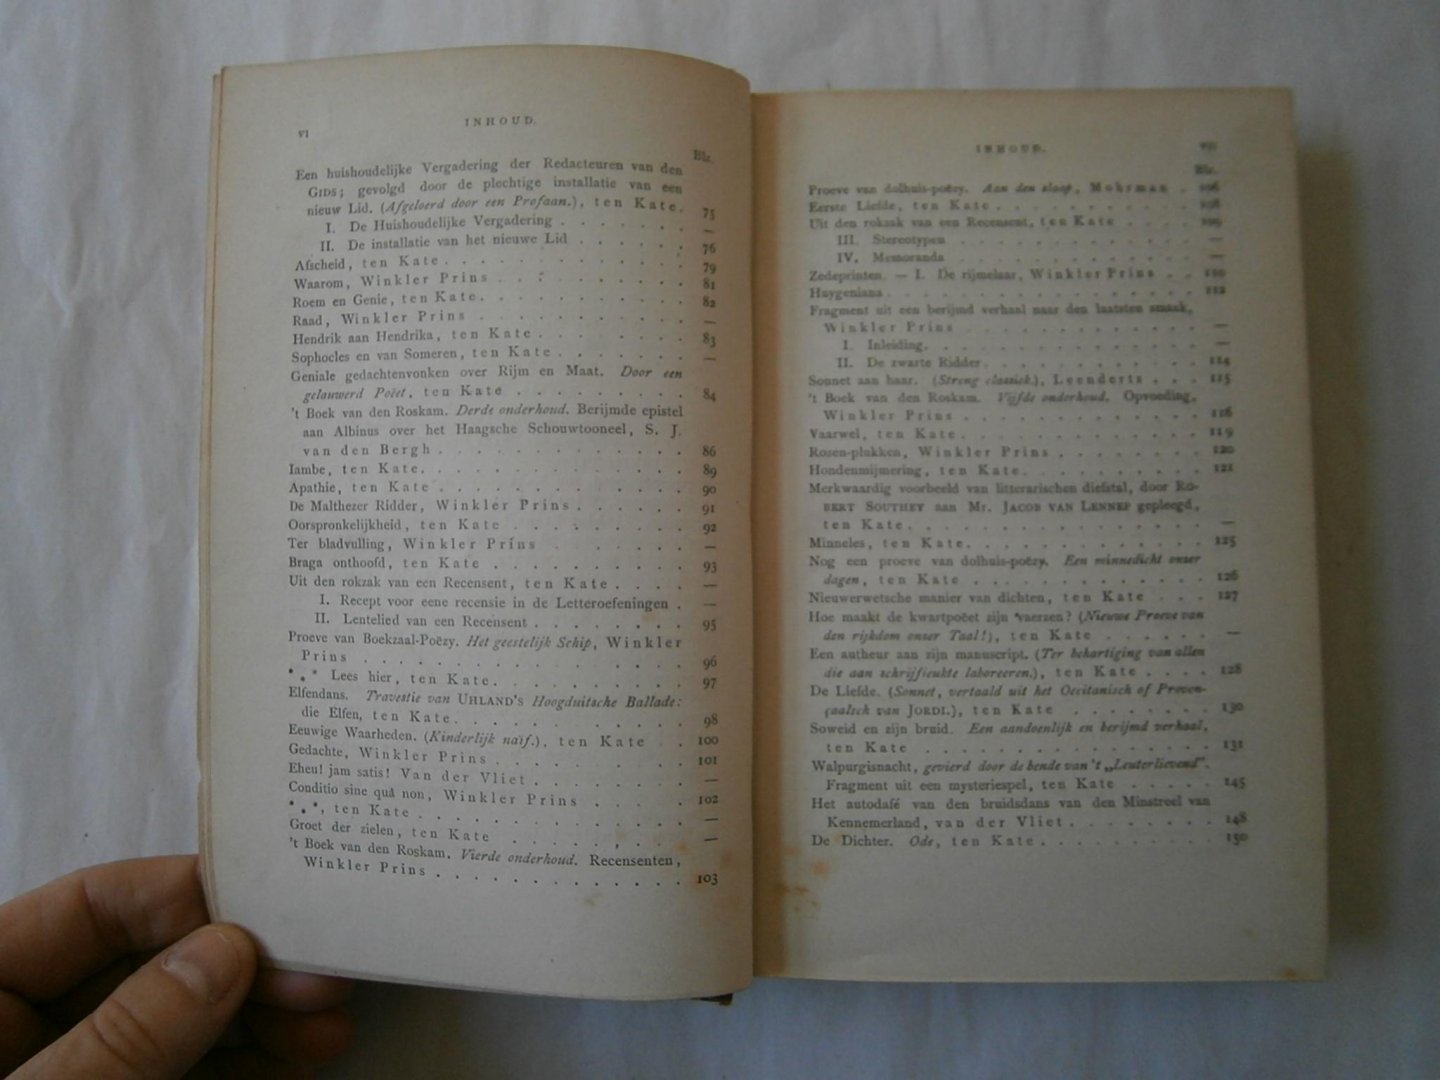 VI
INHOUD.
Blz.
Een huishoudelijke Vergadering der Redacteuren van den
GIDS; gevolgd door de plechtige installatie van een
nieuw Lid. (Afgeloerd door een Profaan.), ten Kate. 75
I. De Huishoudelijke Vergadering . . . . . . . —
II. De installatie van het nieuwe Lid . . . . . . 76
Afscheid, ten Kate . . . . . . . . . . . . . 79
Waarom, Winkler Prins . . . . . . . . . . 81
Roem en Genie, ten Kate. . . . . . . . . . . 82
Raad, Winkler Prins . . . . . . . . . . . —
Hendrik aan Hendrika, ten Kate . . . . . . . . 83
Sophocles en van Someren, ten Kate . . . . . . . —
Geniale gedachtenvonken over Rijm en Maat. Door een
gelauwerd Poëet, ten Kate . . . . . . . . . 84
't Boek van den Roskam. Derde onderhoud. Berijmde epistel
aan Albinus over het Haagsche Schouwtooneel, S. J.
van den Bergh . . . . . . . . . . . . . 86
Iambe, ten Kate. . . . . . . . . . . . . . 89
Apathie, ten Kate . . . . . . . . . . . . . 90
De Malthezer Ridder, Winkler Prins . . . . . . 91
Oorspronkelijkheid, ten Kate . . . . . . . . . 92
Ter bladvulling, Winkler Prins . . . . . . . —
Braga onthoofd, ten Kate . . . . . . . . . . 93
Uit den rokzak van een Recensent, ten Kate . . . . —
I. Recept voor eene recensie in de Letteroefeningen . —
II. Lentelied van een Recensent . . . . . . . . 95
Proeve van Boekzaal-Poëzy. Het geestelijk Schip, Winkler
Prins . . . . . . . . . . . . . . . . 96
*.* Lees hier, ten Kate. . . . . . . . . . . 97
Elfendans. Travestie van UHLAND'S Hoogduitsche Ballade:
die Elfen, ten Kate. . . . . . . . . . . . 98
Eeuwige Waarheden. (Kinderlijk naïf.), ten Kate . . 100
Gedachte, Winkler Prins . . . . . . . . . . 101
Eheu! jam satis! Van der Vliet . . . . . . . . —
Conditio sine quâ non, Winkler Prins . . . . . 102
*.*, ten Kate . . . . . . . . . . . . . . —
Groet der zielen, ten Kate . . . . . . . . . —
't Boek van den Roskam. Vierde onderhoud. Recensenten,
Winkler Prins . . . . . . . . . . . . . 103
INHOUD.
VII
Blz.
Proeve van dolhuis-poëzy. Aan den slaap, Mohrman . 106
Eerste Liefde, ten Kate . . . . . . . . . . . 108
Uit den rokzak van een Recensent, ten Kate . . . . 109
III. Stereotypen . . . . . . . . . . . . —
IV. Memoranda . . . . . . . . . . . . —
Zedeprinten. — I. De rijmelaar, Winkler Prins . . 110
Huygeniana . . . . . . . . . . . . . . . 112
Fragment uit een berijmd verhaal naar den laatsten smaak,
Winkler Prins . . . . . . . . . . . . . —
I. Inleiding. . . . . . . . . . . . . . —
II. De zwarte Ridder . . . . . . . . . . . 114
Sonnet aan haar. (Streng classiek.), Leenderts . . . 115
't Boek van den Roskam. Vijfde onderhoud. Opvoeding,
Winkler Prins . . . . . . . . . . . . . 116
Vaarwel, ten Kate. . . . . . . . . . . . . 119
Rosen-plukken, Winkler Prins . . . . . . . . 120
Hondenmijmering, ten Kate. . . . . . . . . . 121
Merkwaardig voorbeeld van litterarischen diefstal, door RO-
BERT SOUTHEY aan Mr. JACOB VAN LENNEP gepleegd,
ten Kate. . . . . . . . . . . . . . . —
Minneles, ten Kate. . . . . . . . . . . . . 125
Nog een proeve van dolhuis-poëzy. Een minnedicht onzer
dagen, ten Kate . . . . . . . . . . . . 126
Nieuwerwetsche manier van dichten, ten Kate . . . 127
Hoe maakt de kwartpoëet zijn vaerzen? (Nieuwe Proeve van
den rijkdom onzer Taal!), ten Kate . . . . . —
Een autheur aan zijn manuscript. (Ter behartiging van allen
die aan schrijfjeukte laboreeren.), ten Kate . . . . 128
De Liefde. (Sonnet, vertaald uit het Occitanisch of Proven-
çaalsch van JORDI.), ten Kate . . . . . . . . 130
Soweid en zijn bruid. Een aandoenlijk en berijmd verhaal,
ten Kate . . . . . . . . . . . . . . . 131
Walpurgisnacht, gevierd door de bende van 't „Leuterlievend".
Fragment uit een mysteriespel, ten Kate . . . . . 145
Het autodafé van den bruidsdans van den Minstreel van
Kennemerland, van der Vliet . . . . . . . . 148
De Dichter. Ode, ten Kate . . . . . . . . . . 150